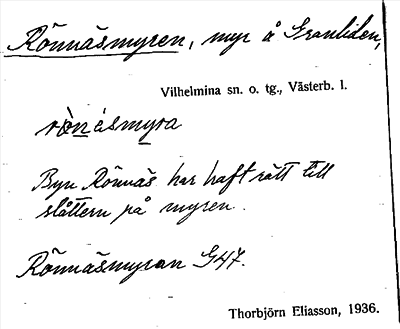 Rönnäsmyren, myr å Granliden,
Vilhelmina sn. o. tg., Västerb. l.
Byn Rönnäs har haft rätt till
slåttern på myren.
Rönnäsmyran G47.
Thorbjörn Eliasson, 1936.